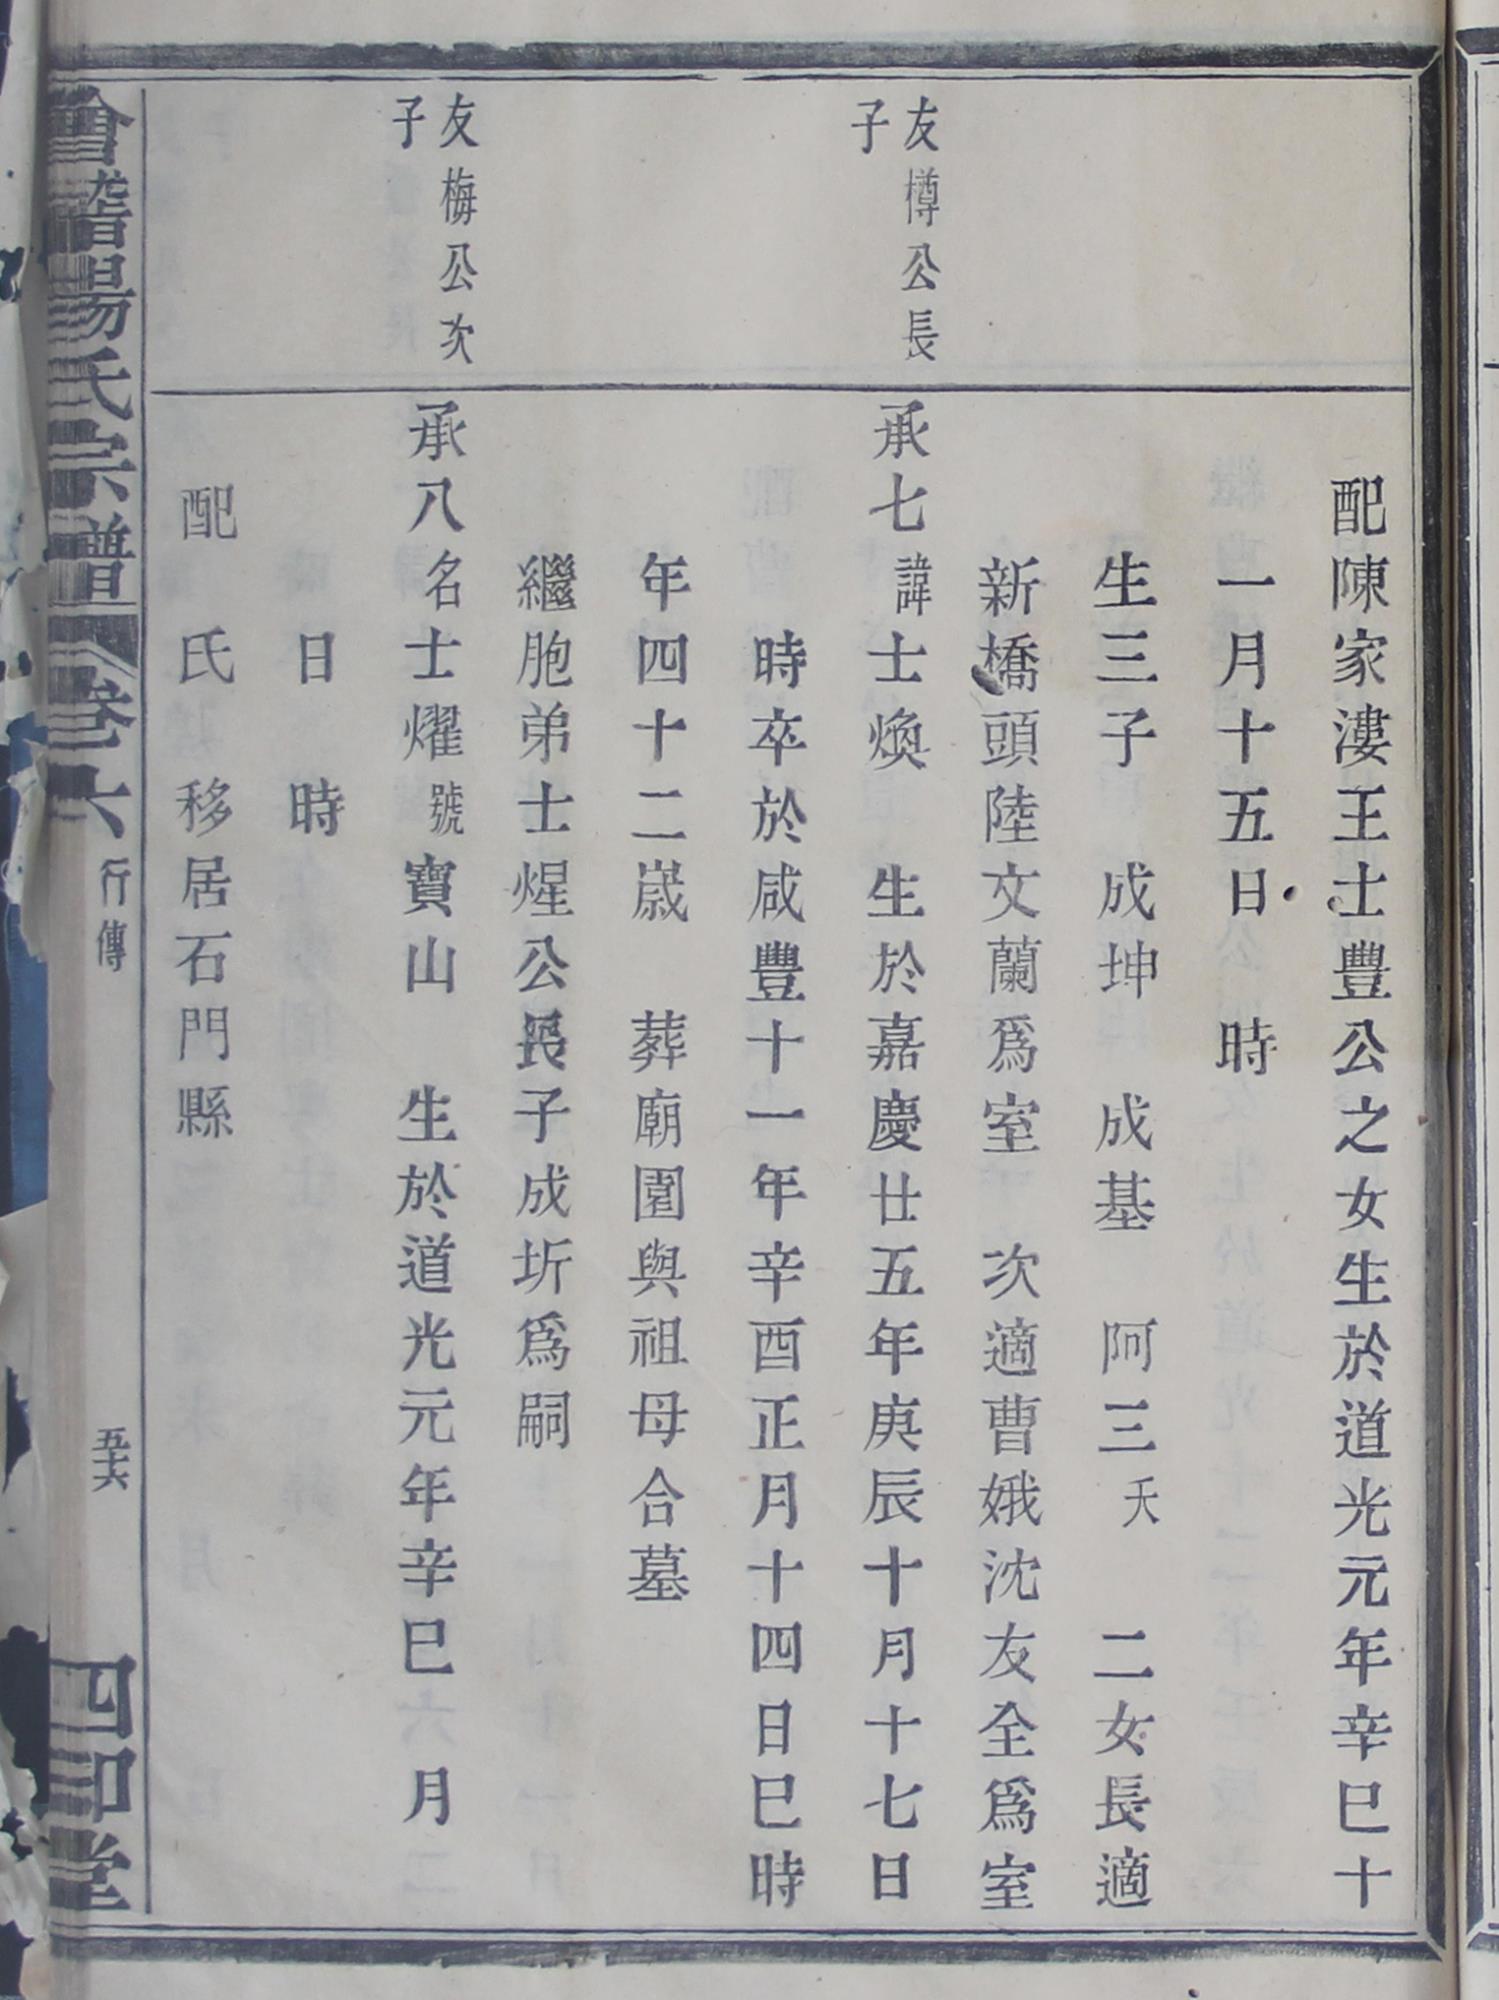 配陳家漊王士豐公之女生於道光元年辛巳十
一月十五日　時
生三子　成坤　成基　阿三夭　二女長適
新橋頭陸文蘭爲室　次適曹娥沈友全爲室
友樽公長
子
承七諱士煥　生於嘉慶廿五年庚辰十月十七日
時卒於咸豐十一年辛酉正月十四日巳時
年四十二歲　葬廟園與祖母合墓
繼胞弟士煋公長子成圻爲嗣
友梅公次
子
承八名士燿號寶山　生於道光元年辛巳　月
日　時
配　氏　移居石門縣
會稽楊氏宗譜　卷六　行傳　五十六　四知堂